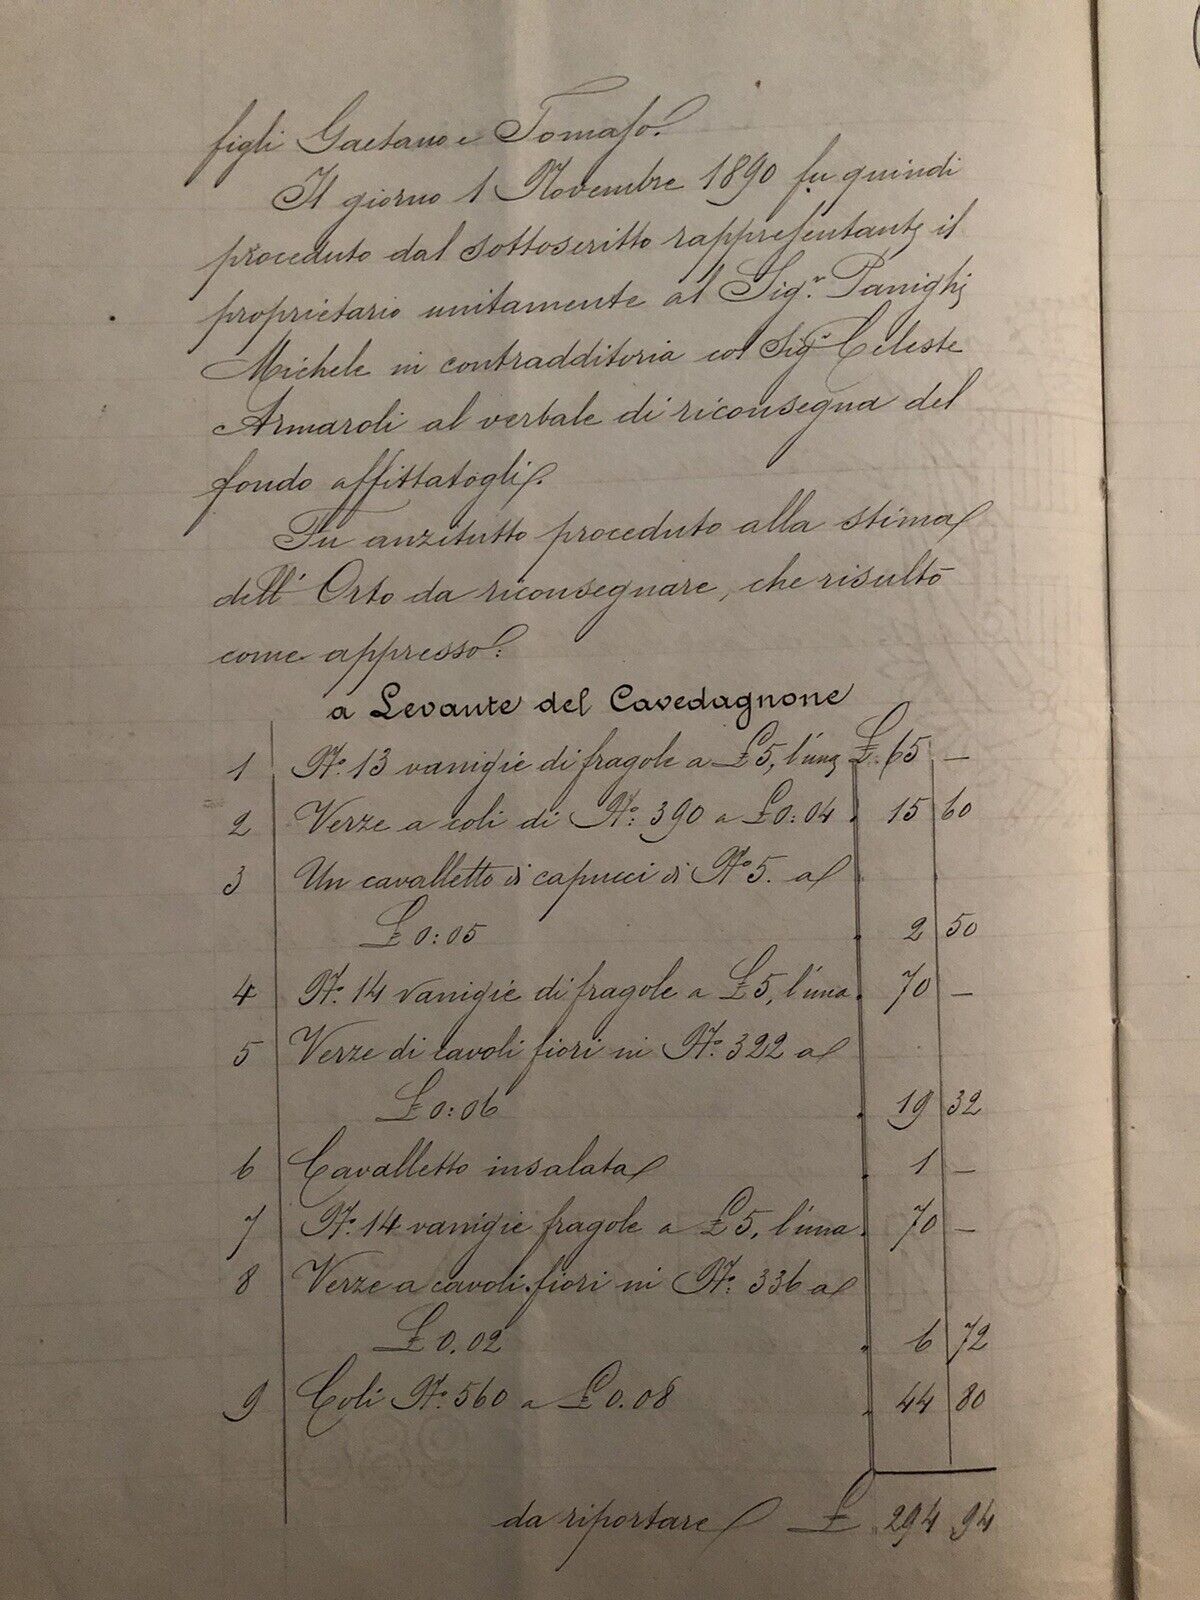 figli Gaetano e Tomaso.
Il giorno 1 Novembre 1890 fu quindi
proceduto dal sottoscritto rappresentante il
proprietario unitamente al Sigr. Panighi
Michele in contradditoria col Sigr. Celeste
Armaroli al verbale di riconsegna del
fondo affittatogli.
Fu anzitutto proceduto alla stima
dell' Orto da riconsegnare, che risultò
come appresso:
a Levante del Cavedagnone
1 No. 13 vanigie di fragole a £ 5, l'una £. 65 —
2 Verze a coli di No: 390 a £ 0:04 15 60
3 Un cavalletto di capucci di No 5. a
£ 0:05 2 50
4 No. 14 vanigie di fragole a £ 5, l'una. 70 —
5 Verze di cavoli fiori ni No. 322 a
£ 0:06 19 32
6 Cavalletto insalata 1 —
7 No. 14 vanigie fragole a £ 5, l'una. 70 —
8 Verze a cavoli fiori ni No: 336 a
£ 0.02 6 72
9 Coli No. 560 a £ 0.08 44 80
da riportare £ 294 94